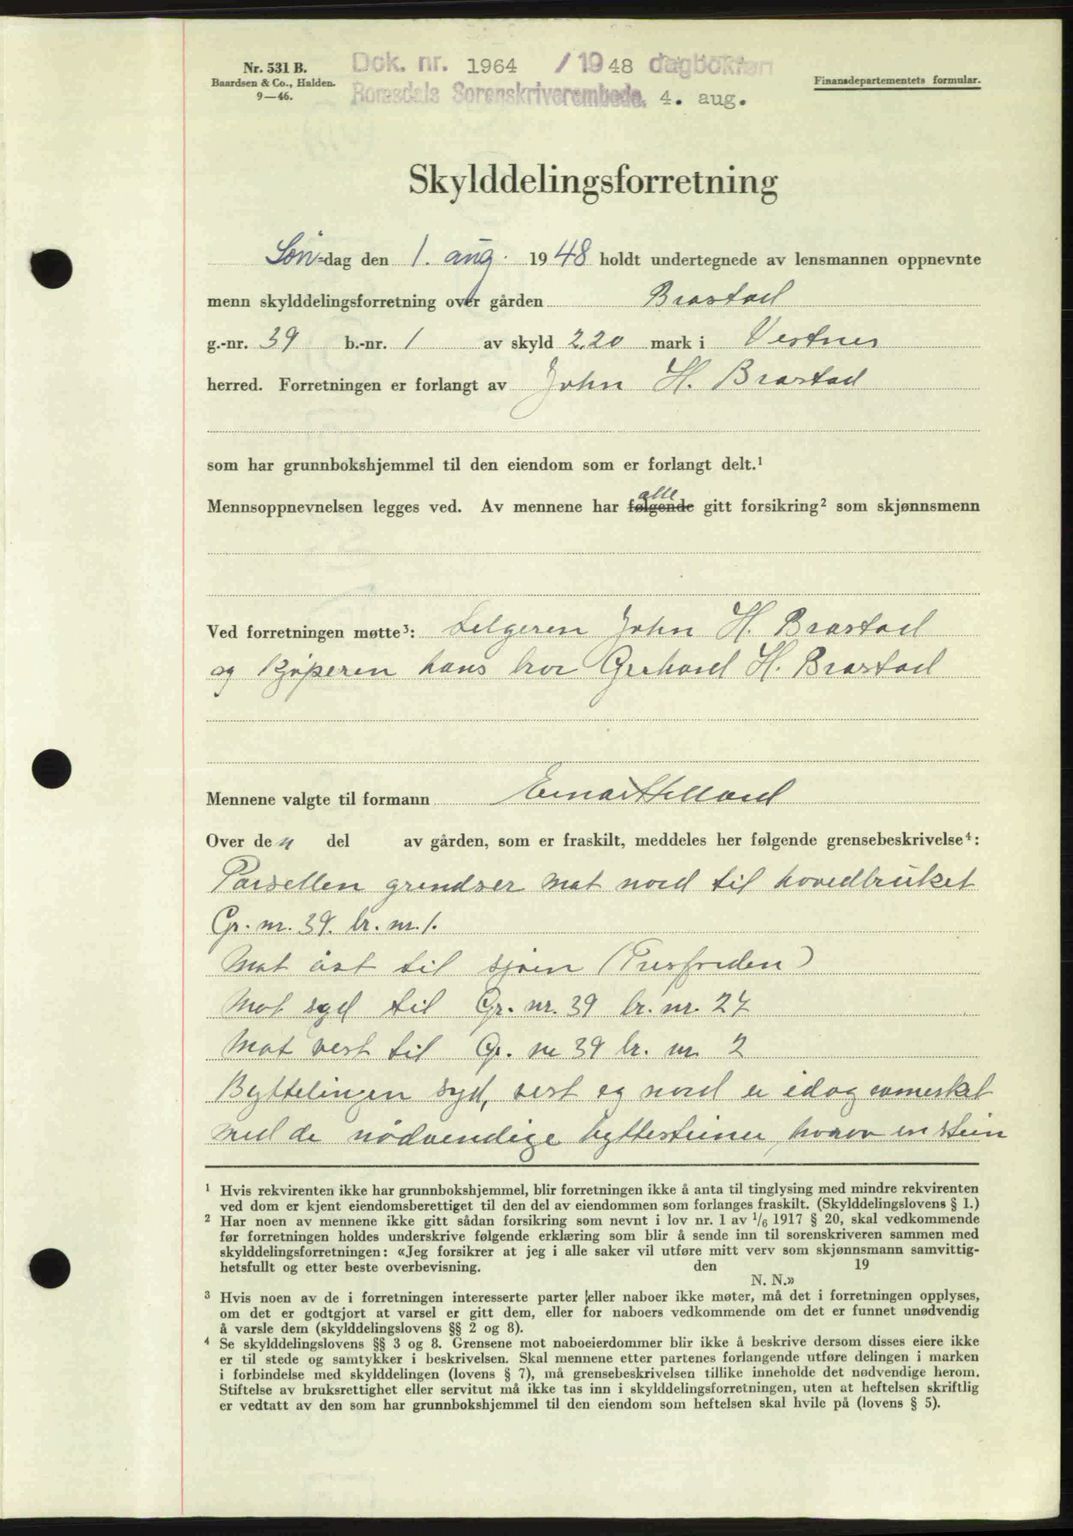 Nr. 531 B.
Baardsen & Co., Halden.
9—46.
Dok. nr. 1964 /1948 dagbokført
Romsdals Sorenskriverembede, 4. aug.
Finansdepartementets formular.
Skylddelingsforretning
Søn-dag den 1. aug. 1948 holdt undertegnede av lensmannen oppnevnte
menn skylddelingsforretning over gården Brastad
g.-nr. 39 b.-nr. 1 av skyld 2.20 mark i Vestnes
herred. Forretningen er forlangt av John H. Brastad
som har grunnbokshjemmel til den eiendom som er forlangt delt.¹
alle
Mennsoppnevnelsen legges ved. Av mennene har følgende gitt forsikring² som skjønnsmenn
Ved forretningen møtte³: Selgeren John H. Brastad
og kjøperen hans bror Gerhard H. Brastad
Mennene valgte til formann Einar
Over de n del av gården, som er fraskilt, meddeles her følgende grensebeskrivelse⁴:
Parsellen grendser mot nord til hovedbruket
Gr. nr. 39. br. nr. 1.
Mot øst til sjøen (Tresfjorden)
Mot syd til Gr. nr. 39 br. nr. 27
Mot vest til Gr. nr 39 br. nr 2
Byttelingen syd, vest og nord er idag
med de nødvendige byttesteiner, hvorav en stein
¹ Hvis rekvirenten ikke har grunnbokshjemmel, blir forretningen ikke å anta til tinglysing med mindre rekvirenten
ved dom er kjent eiendomsberettiget til den del av eiendommen som forlanges fraskilt. (Skylddelingslovens § 1.)
² Har noen av mennene ikke gitt sådan forsikring som nevnt i lov nr. 1 av 1/6 1917 § 20, skal vedkommende
før forretningen holdes underskrive følgende erklæring som blir å sende inn til sorenskriveren sammen med
skylddelingsforretningen: «Jeg forsikrer at jeg i alle saker vil utføre mitt verv som skjønnsmann samvittig-
hetsfullt og etter beste overbevisning. den 19
N. N.»
³ Hvis noen av de i forretningen interesserte parter eller naboer ikke møter, må det i forretningen opplyses,
om det er godtgjort at varsel er gitt dem, eller for naboers vedkommende om det er funnet unødvendig
å varsle dem (skylddelingslovens §§ 2 og 8).
⁴ Se skylddelingslovens §§ 3 og 8. Grensene mot naboeierdommer blir ikke å beskrive dersom disses eiere ikke
er til stede og samtykker i beskrivelsen. Skal mennene etter partenes forlangende utføre delingen i marken
i forbindelse med skylddelingen (lovens § 7), må grensebeskrivelsen tillike inneholde det nødvendige herom.
Stiftelse av bruksrettighet eller servitut må ikke tas inn i skylddelingsforretningen, uten at heftelsen skriftlig
er vedtatt av den som har grunnbokshjemmel til den eiendom som heftelsen skal hvile på (lovens § 5).